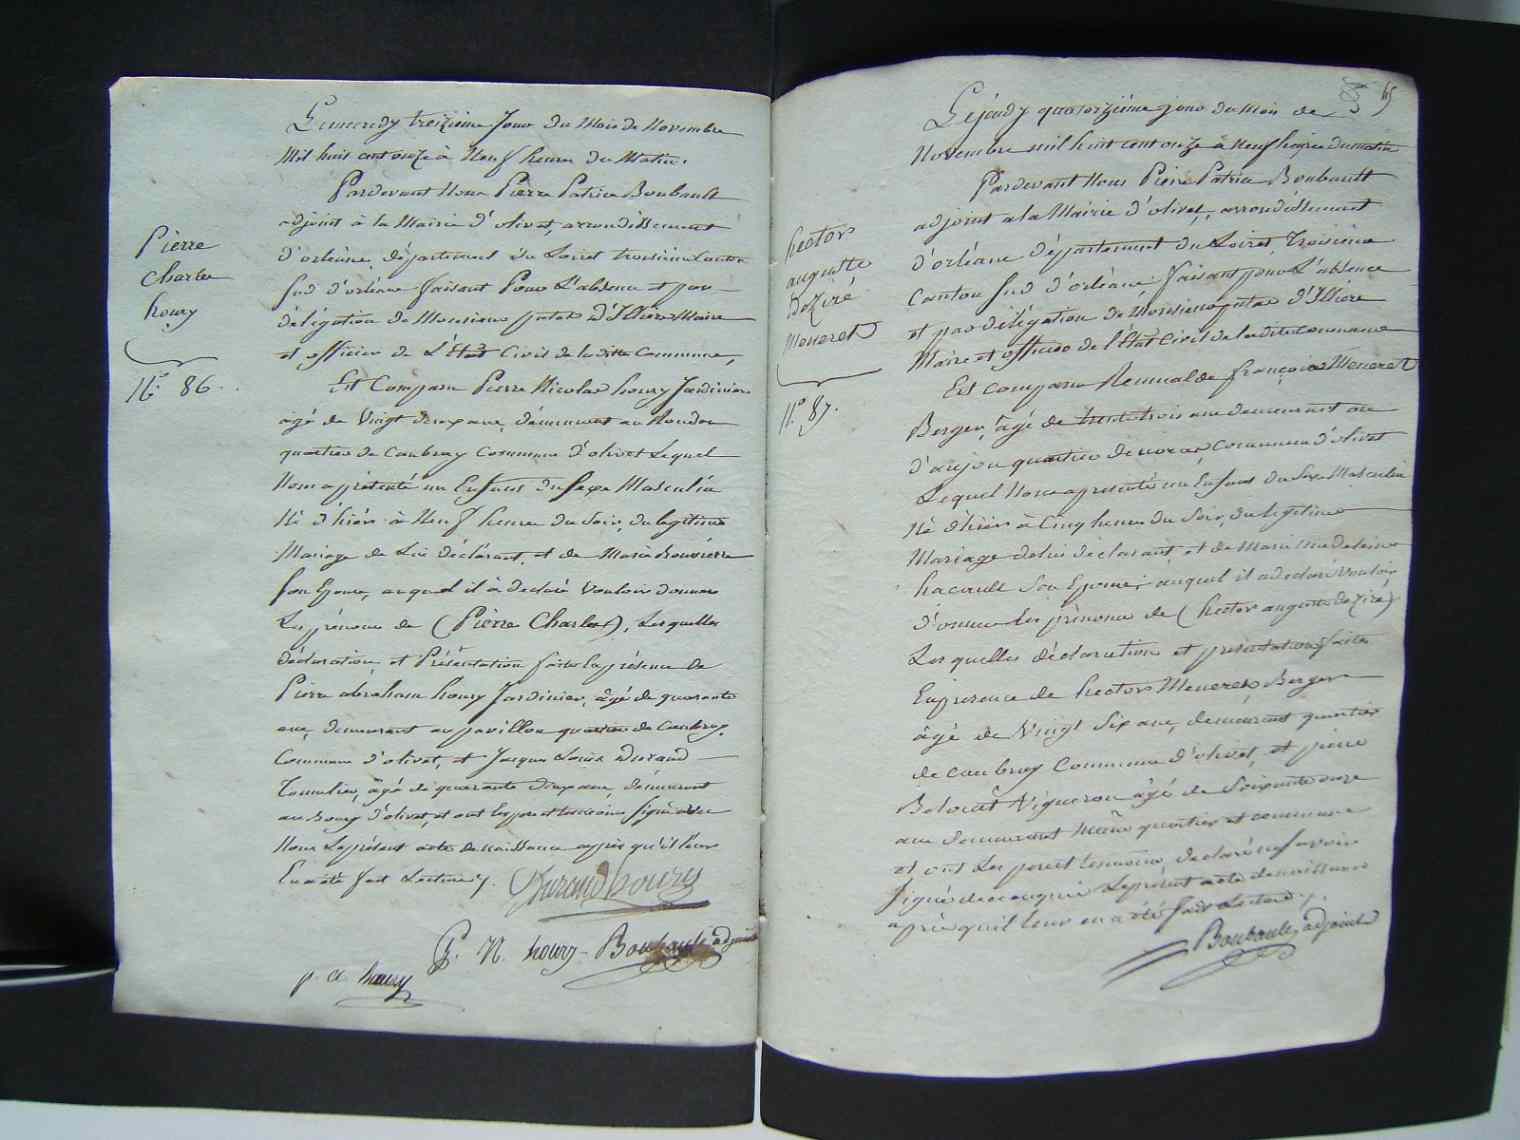 Le mercredy treizième Jour du Mois de Novembre
Mil huit cent onze à Neuf heures du Matin.
Pardevant Nous Pierre Patrice Boubault
adjoint à la Mairie d'olivet, arrondissement
d'orléans, département du Loiret troisième Canton
Sud d'orléans faisant Pour L'absence et par
délégation de Monsieur d'Illiers Maire
et officier de L'état Civil de laditte Commune,
Est Comparu Pierre Nicolas houry Jardinier
agé de Vingt deux ans, démeurant au
quartier de Caubray Commune d'olivet Lequel
Nous a présenté un Enfant du Sexe Masculin
Né d'hier à Neuf heures du Soir, du legitime
Mariage de Lui déclarant, et de Marie
son Epouse, auquel il à déclaré Vouloir donner
Les prénoms de (Pierre Charles), Lesquelles
déclaration, et Présentation faites En présence de
Pierre abraham houry Jardinier, âgé de quarante
ans, demeurant au pavillon quartier de Caubray
Commune d'olivet, et Jacques Louis Durand
Tonnelier, âgé de quarante deux ans, démeurant
au Bourg d'olivet, et ont les pere et temoins signé avec
Nous Le présent acte de naissance après qu'il leur
En a été fait Lecture.
Durand houry
P. N. houry - Boubault adjoint
p. a houry
Pierre
Charles
houry
N.° 86.
65
Le jeudy quatorzième jour du Mois de
Novembre mil huit cent onze à Neuf heures du matin
Pardevant Nous Pierre Patrice Boubault
adjoint a la Mairie d'olivet, arrondissement
d'orléans département du Loiret troisième
Canton Sud d'orléans faisant pour L'absence
et par délégation de Monsieur d'Illiers
Maire et officier de l'Etat Civil de ladite commune
Est comparu Romualde françois Meneret
Berger, âgé de trente trois ans demeurant au
d'anjou quartier de commune d'olivet
Lequel Nous a presenté un Enfant du Sexe Masculin
Né d'hier à Cinq heures du Soir, du legitime
Mariage de lui déclarant et de Marie Madeleine
hacault Son Epouse, auquel il a declaré Vouloir
donner Les prénoms de (hector auguste deziré)
Lesquelles déclaration et présentation faites
En presence de hector Meneret Berger
âgé de Vingt Six ans, demeurant quartier
de Caubray Commune d'olivet, et pierre
Vigneron âgé de Soixante onze
ans demeurant même quartier et commune
et ont Les pere et temoins declaré ne savoir
signer de ce enquis Le présent acte de naissance
après qu'il leur en a été fait Lecture.
Boubault adjoint
hector
auguste
deziré
Meneret
N.° 87.